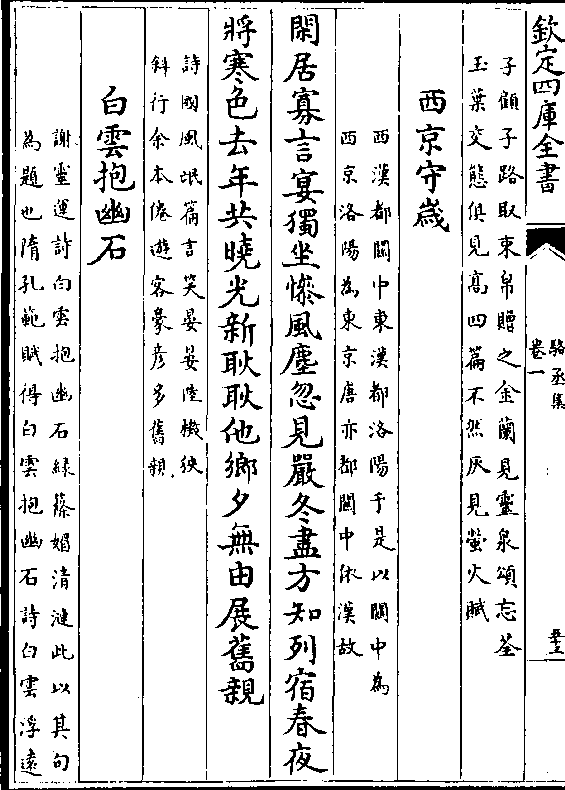 欽定四庫全書
駱丞集
卷一
子顧子路取束帛贈之金蘭見靈泉頌忘筌
玉葉交態俱見髙四篇不然灰見螢火賦
西京守歳
西漢都闗中東漢都洛陽于是以闗中為
西京洛陽為東京唐亦都闗中依漢故
閑居寡言宴獨坐慘風塵忽見嚴冬盡方知列宿春夜
將寒色去年共曉光新耿耿他鄉夕無由展舊親
詩國風氓篇言笑晏晏陸機俠
斜行余本倦遊客豪彦多舊親
白雲抱幽石
謝靈運詩白雲抱幽石緑篠媚清漣此以其句
為題也隋孔範賦得白雲抱幽石詩白雲浮遠